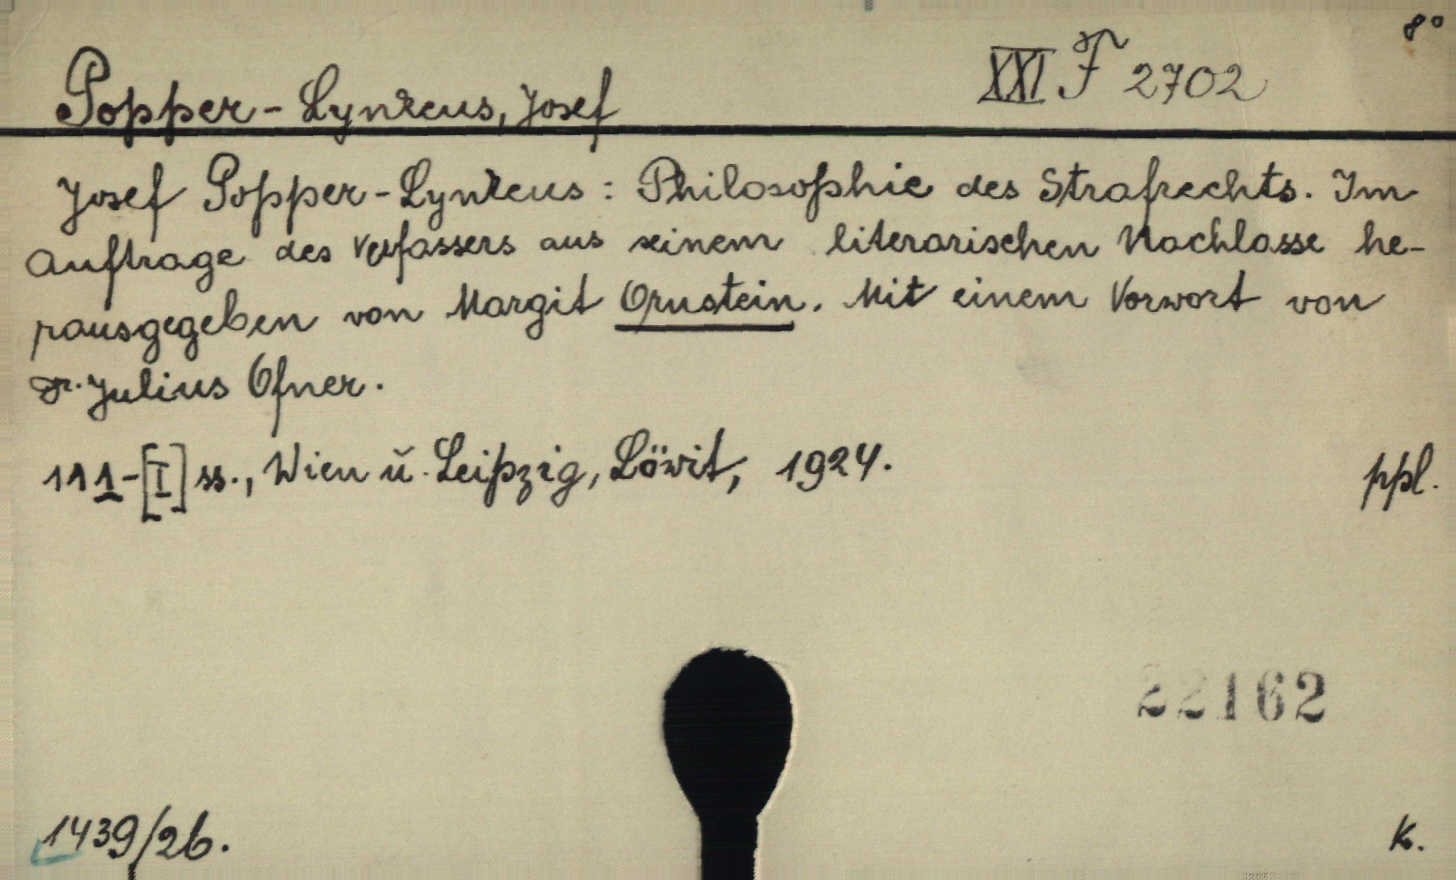 8°
XXI F 2702
Popper-Lynkeus, Josef
Josef Popper-Lynkeus: Philosophie des Strafrechts. Im
Auftrage des Verfassers aus seinem literarischen Nachlasse he-
rausgegeben von Margit Ornstein. Mit einem Vorwort von
Dr. Julius Ofner.
111-[I] ss., Wien ŭ. Leipzig, Löwit, 1924.
ppl.
22162
1439/26.
K.